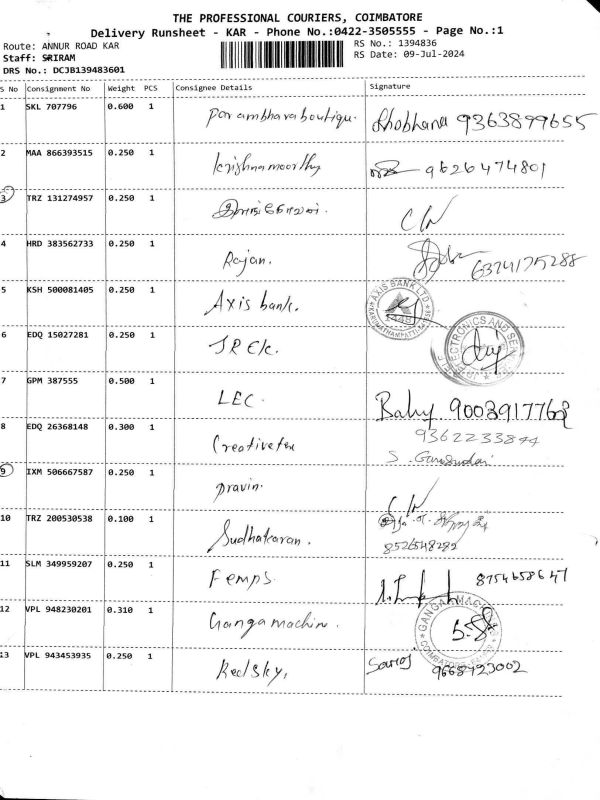 THE PROFESSIONAL COURIERS, COIMBATORE
Delivery Runsheet - KAR - Phone No.:0422-3505555 - Page No.:1
Route: ANNUR ROAD KAR
RS No.: 1394836
Staff: SRIRAM
RS Date: 09-Jul-2024
DRS No.: DCJB139483601
S No Consignment No Weight PCS Consignee Details Signature
1 SKL 707796 0.600 1 Parambharaboutique. Shobhana 9363899655
2 MAA 866393515 0.250 1 krishnamoorthy 9626474801
3 TRZ 131274957 0.250 1
4 HRD 383562733 0.250 1 Rajan. 6374175288
5 KSH 500081405 0.250 1 Axis bank. AXIS BANK LTD
6 EDQ 15027281 0.250 1 ELECTRONICS AND
7 GPM 387555 0.500 1 LEC. Baby 9003917762
8 EDQ 26368148 0.300 1 Creativetex 9362233844
9 IXM 506667587 0.250 1 pravin.
10 TRZ 200530538 0.100 1 Sudhakaran. 8526548282
11 SLM 349959207 0.250 1 Femps 8754658647
12 VPL 948230201 0.310 1 Ganga machin. GANGA
13 VPL 943453935 0.250 1 Redsky. Saroj 9668723002